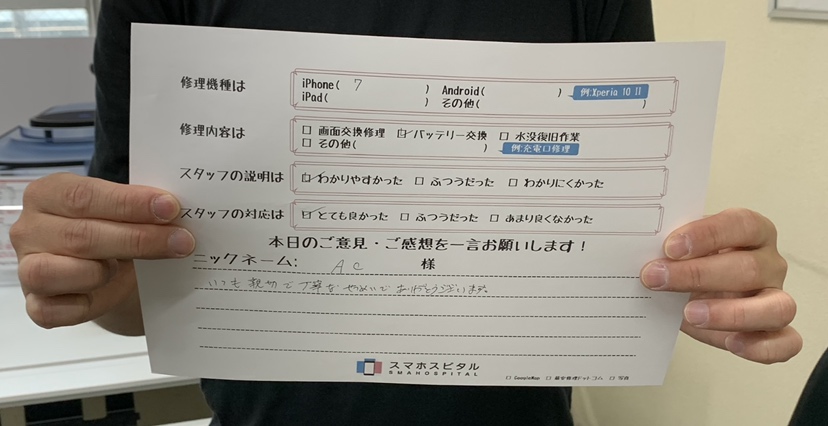 修理機種は
iPhone( 7 ) Android( ) 例:Xperia 10 II
iPad( ) その他( )
修理内容は
☐ 画面交換修理 ☑ バッテリー交換 ☐ 水没復旧作業
☐ その他( ) 例:充電口修理
スタッフの説明は ☑ わかりやすかった ☐ ふつうだった ☐ わかりにくかった
スタッフの対応は ☑ とても良かった ☐ ふつうだった ☐ あまり良くなかった
本日のご意見・ご感想を一言お願いします!
ニックネーム: AC 様
いつも親切で丁寧な ありがとうございます。
スマホスピタル
SMAHOSPITAL
☐ GoogleMap ☐ 最安修理ドットコム ☐ 写真